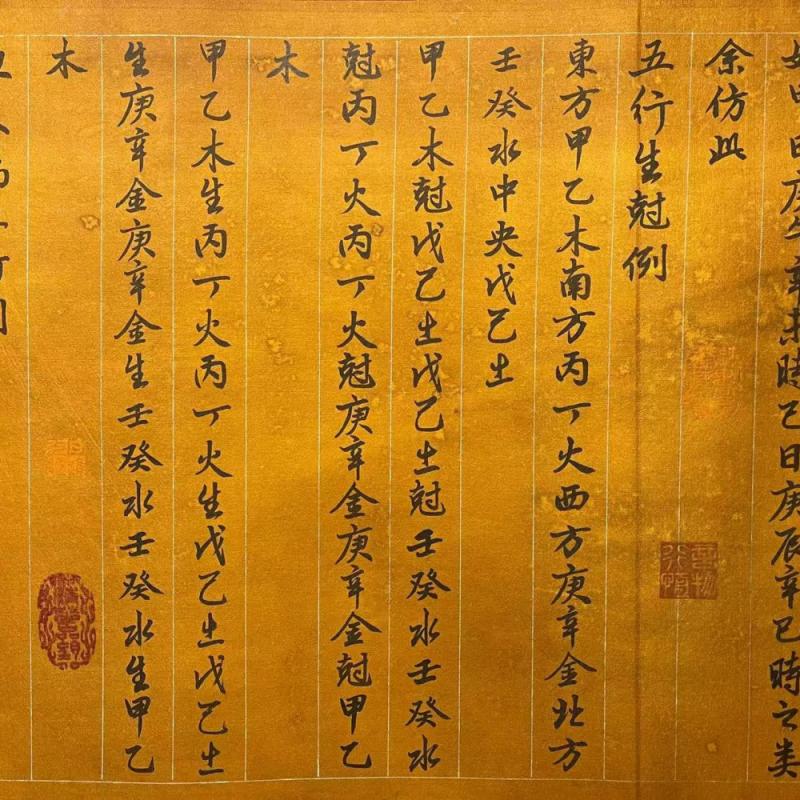 日庚午辛未時己日庚辰辛巳時之类
余仿此
五行生尅例
東方甲乙木南方丙丁火西方庚辛金北方
壬癸水中央戊己土
甲乙木尅戊己土戊己土尅壬癸水壬癸水
尅丙丁火丙丁火尅庚辛金庚辛金尅甲乙
木
甲乙木生丙丁火丙丁火生戊己土戊己土
生庚辛金庚辛金生壬癸水壬癸水生甲乙
木